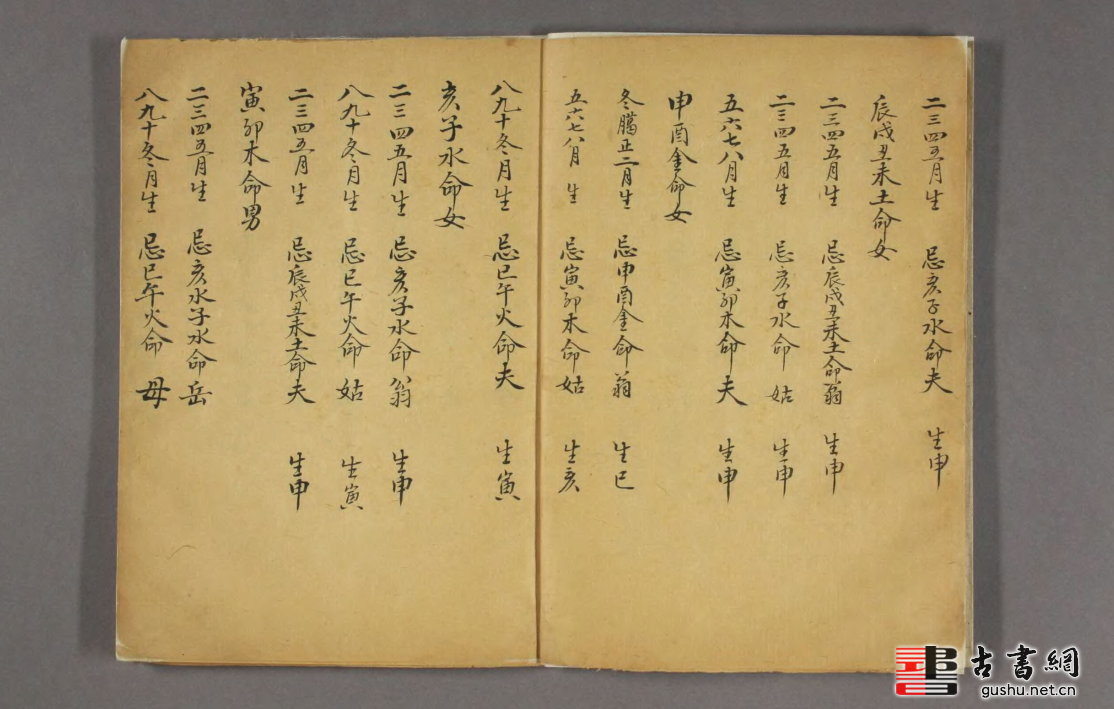 二三四五月生 忌亥子水命夫 生申
辰戌丑未土命女
二三四五月生 忌辰戌丑未土命翁 生申
二三四五月生 忌亥子水命姑 生申
五六七八月生 忌寅卯木命夫 生申
申酉金命女
冬臈正二月生 忌申酉金命翁 生巳
五六七八月生 忌寅卯木命姑 生亥
八九十冬月生 忌巳午火命夫 生寅
亥子水命女
二三四五月生 忌亥子水命翁 生申
八九十冬月生 忌巳午火命姑 生寅
二三四五月生 忌辰戌丑未土命夫 生申
寅卯木命男
二三四五月生 忌亥水子水命岳
八九十冬月生 忌巳午火命母
古書網
gushu.net.cn